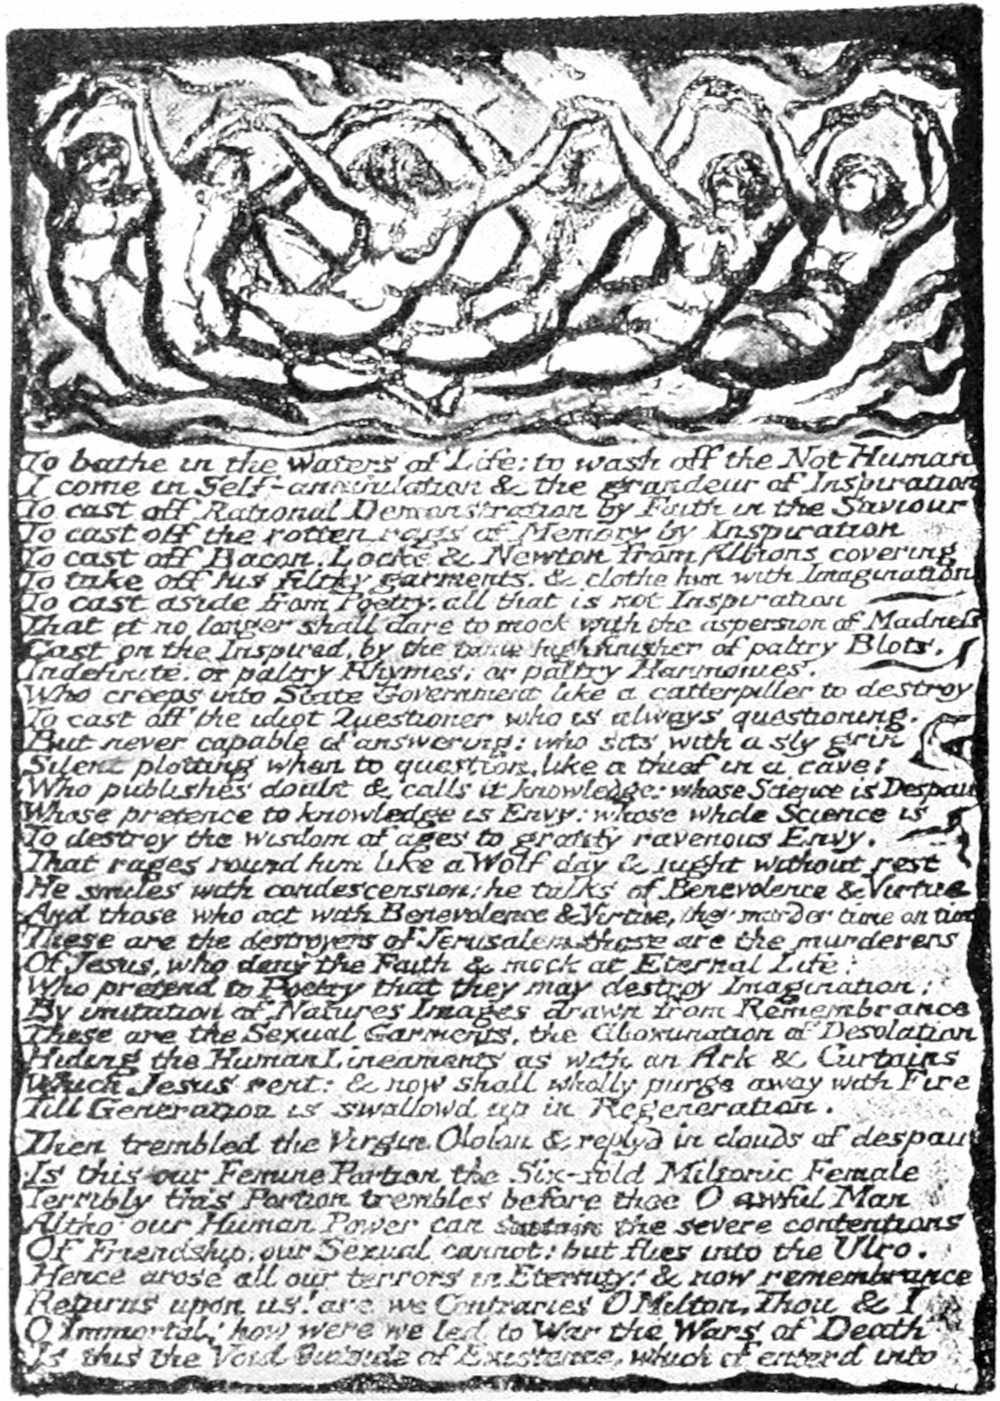 To bathe in the Waters of Life; to wash off the Not Human
I come in Self-annihilation & the grandeur of Inspiration
To cast off Rational Demonstration by Faith in the Saviour
To cast off the rotten rags of Memory by Inspiration
To cast off Bacon, Locke & Newton from Albions covering
To take off his filthy garments, & clothe him with Imagination
To cast aside from Poetry, all that is not Inspiration
That it no longer shall dare to mock with the aspersion of Madness
Cast on the Inspired, by the tame high finisher of paltry Blots,
Indefinite, or paltry Rhymes; or paltry Harmonies.
Who creeps into State Government like a catterpiller to destroy
To cast off the idiot Questioner who is always questioning,
But never capable of answering; who sits with a sly grin
Silent plotting when to question, like a thief in a cave;
Who publishes doubt & calls it knowledge; whose Science is Despair
Whose pretence to knowledge is Envy: whose whole Science is
To destroy the wisdom of ages to gratify ravenous Envy.
That rages round him like a Wolf day & night without rest
He smiles with condescension; he talks of Benevolence & Virtue
And those who act with Benevolence & Virtue, they murder time on time
These are the destroyers of Jerusalem, these are the murderers
Of Jesus, who deny the Faith & mock at Eternal Life:
Who pretend to Poetry that they may destroy Imagination;
By imitation of Natures Images drawn from Remembrance
These are the Sexual Garments, the Abomination of Desolation
Hiding the Human Lineaments as with an Ark & Curtains
Which Jesus rent: & now shall wholly purge away with Fire
Till Generation is swallowd up in Regeneration.
Then trembled the Virgin Ololon & replyd in clouds of despair
Is this our Femine Portion the Six-fold Miltonic Female
Terribly this Portion trembles before thee O awful Man
Altho' our Human Power can sustain the severe contentions
Of Friendship, our Sexual cannot: but flies into the Ulro.
Hence arose all our terrors in Eternity! & now remembrance
Returns upon us! are we Contraries O Milton, Thou & I
O Immortal! how were we led to War the Wars of Death
Is this the Void Outside of Existence, which if enterd into